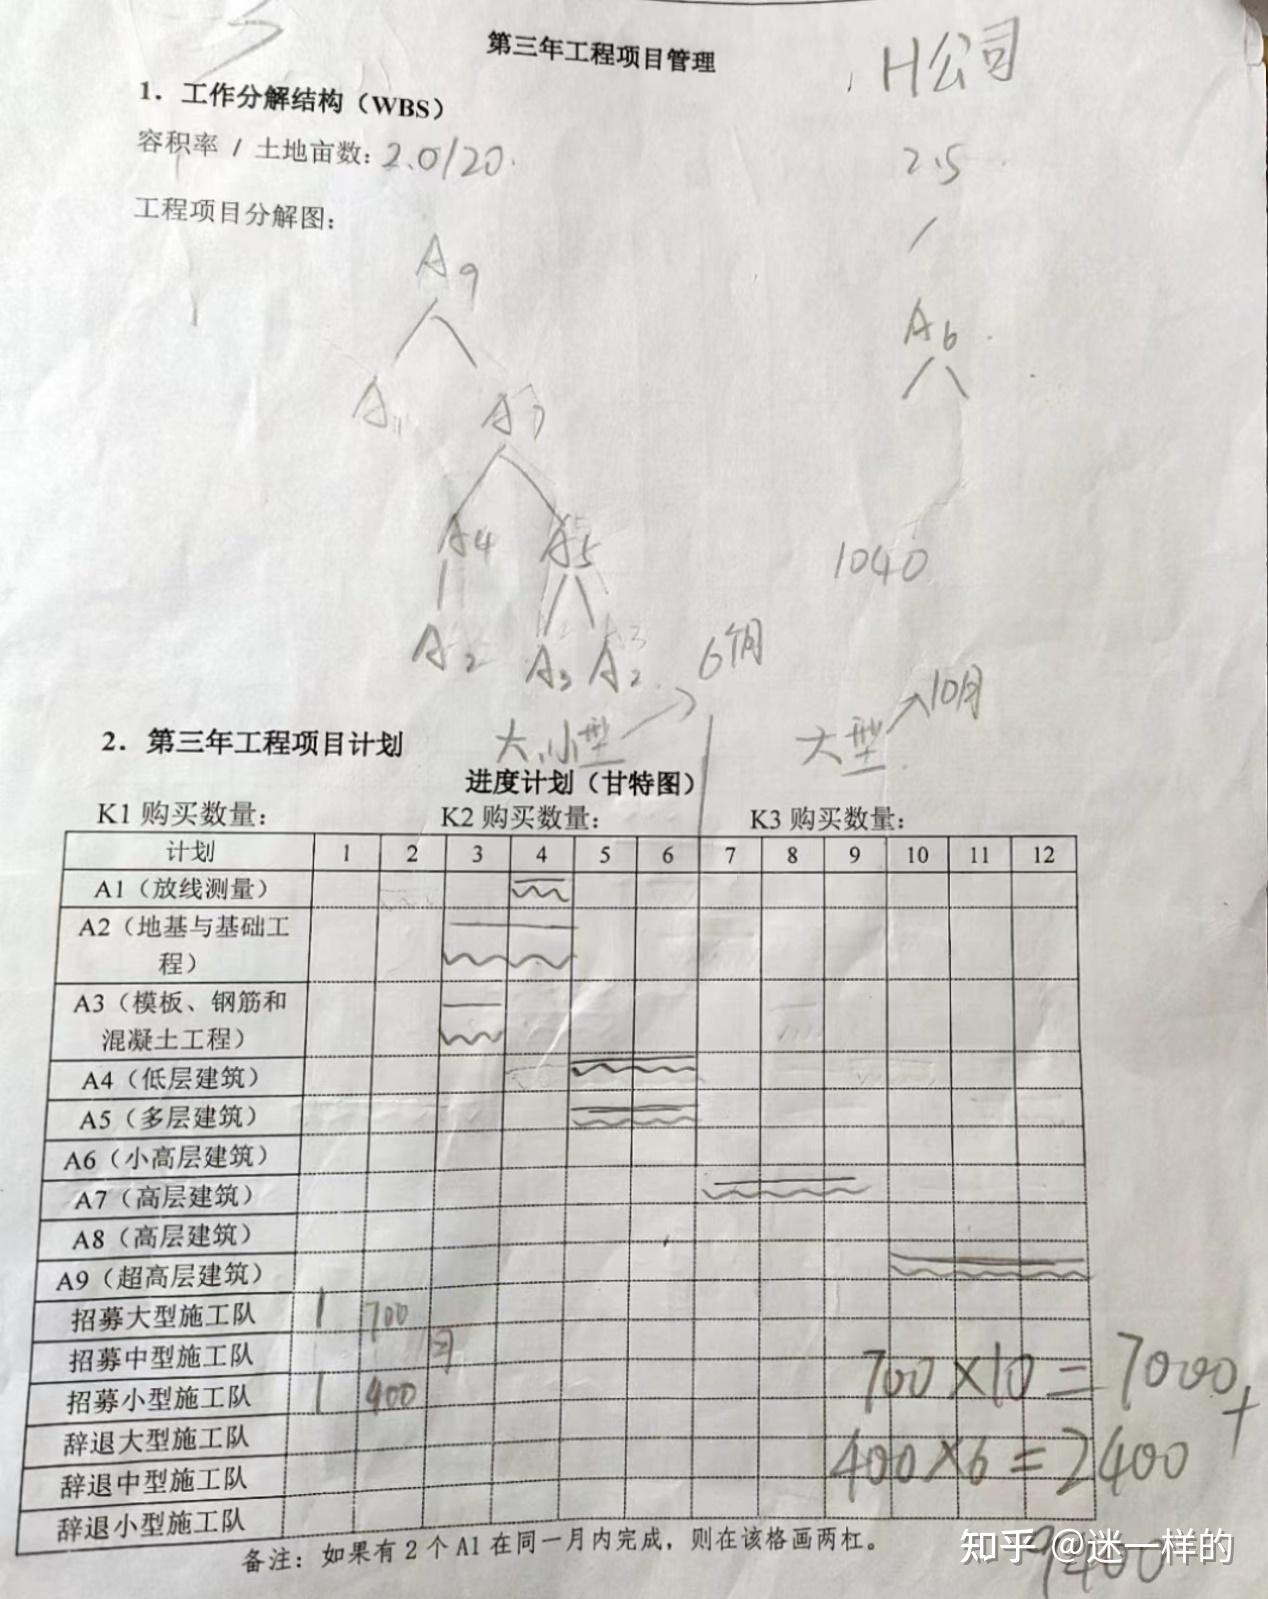 第三年工程项目管理
H公司
1. 工作分解结构（WBS）
容积率 / 土地亩数: 2.0/20.
2.5
工程项目分解图:
A9
A6
A1 A7
A4 A5
1040
A2 A3 A2
6个月
10月
大、小型
大型
2. 第三年工程项目计划
进度计划（甘特图）
K1 购买数量: K2 购买数量: K3 购买数量:
计划 1 2 3 4 5 6 7 8 9 10 11 12
A1（放线测量）
A2（地基与基础工
程）
A3（模板、钢筋和
混凝土工程）
A4（低层建筑）
A5（多层建筑）
A6（小高层建筑）
A7（高层建筑）
A8（高层建筑）
A9（超高层建筑）
招募大型施工队 1 700
招募中型施工队
700×10=7000+
招募小型施工队 1 400
辞退大型施工队
400×6=2400
辞退中型施工队
辞退小型施工队
9400
备注：如果有 2 个 A1 在同一月内完成，则在该格画两杠。
知乎 @迷一样的